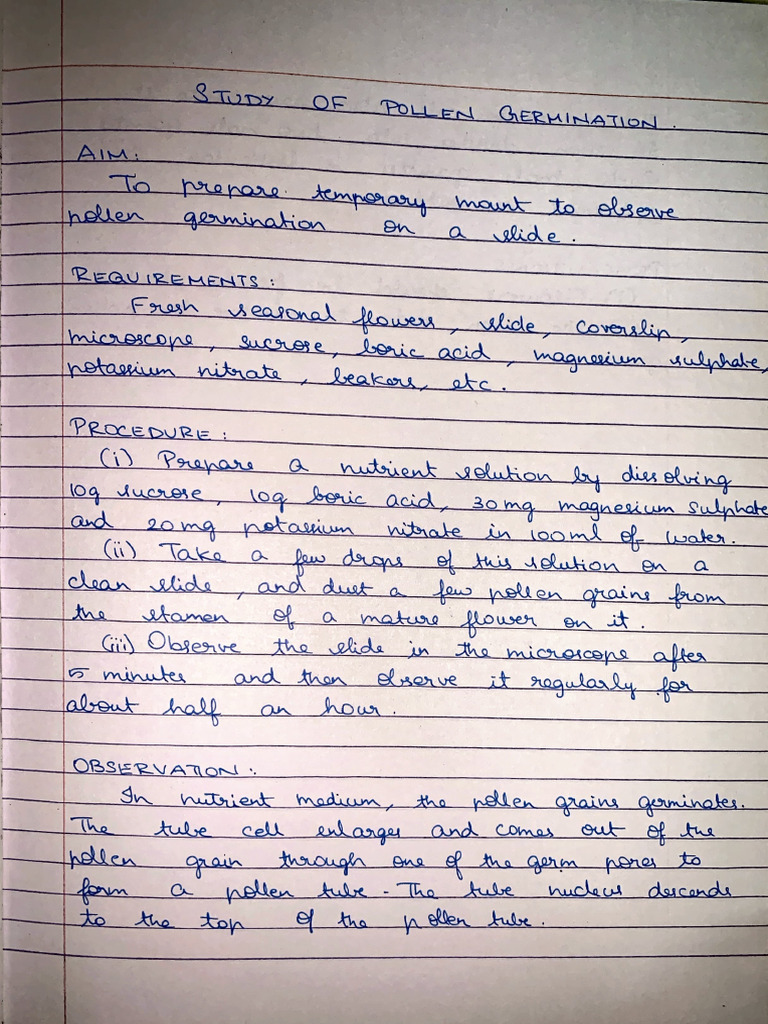 STUDY OF POLLEN GERMINATION.
AIM:
To prepare temporary mount to observe
pollen germination on a slide.
REQUIREMENTS:
Fresh seasonal flowers, slide, coverslip,
microscope, sucrose, boric acid, magnesium sulphate,
potassium nitrate, beakers, etc.
PROCEDURE:
(i) Prepare a nutrient solution by dissolving
10g sucrose, 10g boric acid, 30mg magnesium sulphate
and 20mg potassium nitrate in 100ml of water.
(ii) Take a few drops of this solution on a
clean slide, and dust a few pollen grains from
the stamen of a mature flower on it.
(iii) Observe the slide in the microscope after
5 minutes and then observe it regularly for
about half an hour.
OBSERVATION:
In nutrient medium, the pollen grains germinates.
The tube cell enlarges and comes out of the
pollen grain through one of the germ pores to
form a pollen tube. The tube nucleus descends
to the top of the pollen tube.